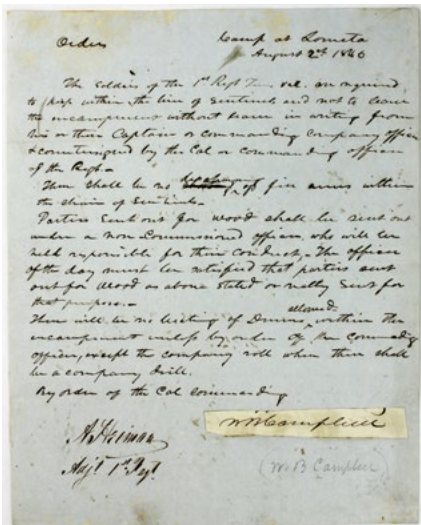 Orders Camp at Lomita
August 2d 1846
The Soldiers of the 1st Regt Ten. vol. are required
to keep within the line of Sentinels and not to leave
the incampment without leave in writing from
his or their Captain or commanding company officer
& countersigned by the Col or commanding officer
of the Regt.
There shall be no of fire arms within
the chain of Sentinels.
Parties Sent out for wood shall be sent out
under a non Commissioned officer, who will be
held responsible for their conduct. The officer
of the day must be satisfied that parties sent
out for wood as above stated or really sent for
that purpose.
allowed
There will be no beating of Drums within the
incampment unless by order of the Commanding
officer, except the company roll when there shall
be a company drill.
By order of the Col Commanding
WB Campbell
A Heiman
Adjt 1st Regt
(W B Campbell)